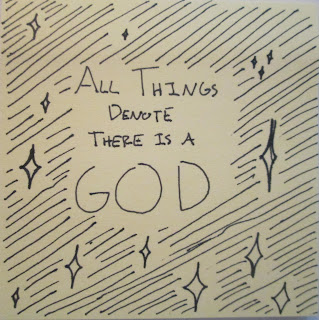 ALL THINGS
DENOTE
THERE IS A
GOD